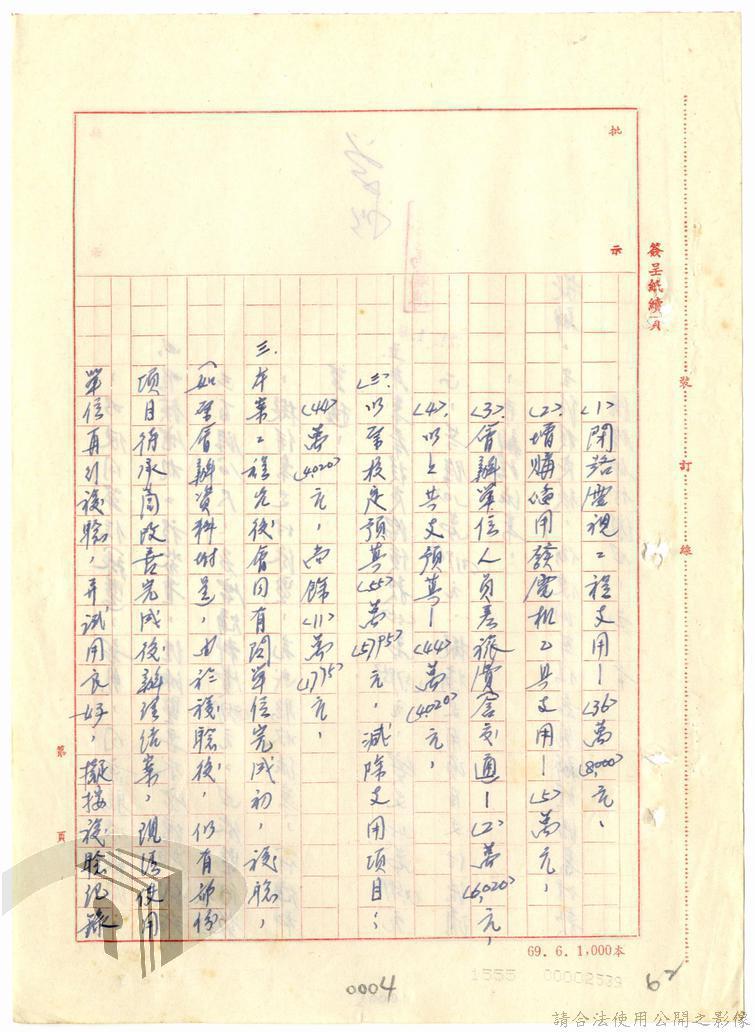 簽呈紙續頁
裝訂線
批示
(1)閉路電視工程支用—(36)萬(8,000)元、
(2)增購備用發電機乙具支用—(5)萬元,
(3)會辦單位人員差旅費含交通—(2)萬(6,020)元,
(4)以上共支預算—(44)萬(4,020)元,
(三)以原核定預算(55)萬(5,795)元,減除支用項目:
(44)萬(4,020)元,尚餘(11)萬(1,775)元,
三.本案工程完後會同有關單位完成初,複驗,
(如原會辦資料附呈,由於複驗後,仍有部份
項目待承商改善完成後辦理結案,現經使用
單位再引複驗,並試用良好,擬按複驗紀錄
第 頁
69.6.1,000本
1555 00002539
0004
62
請合法使用公開之影像